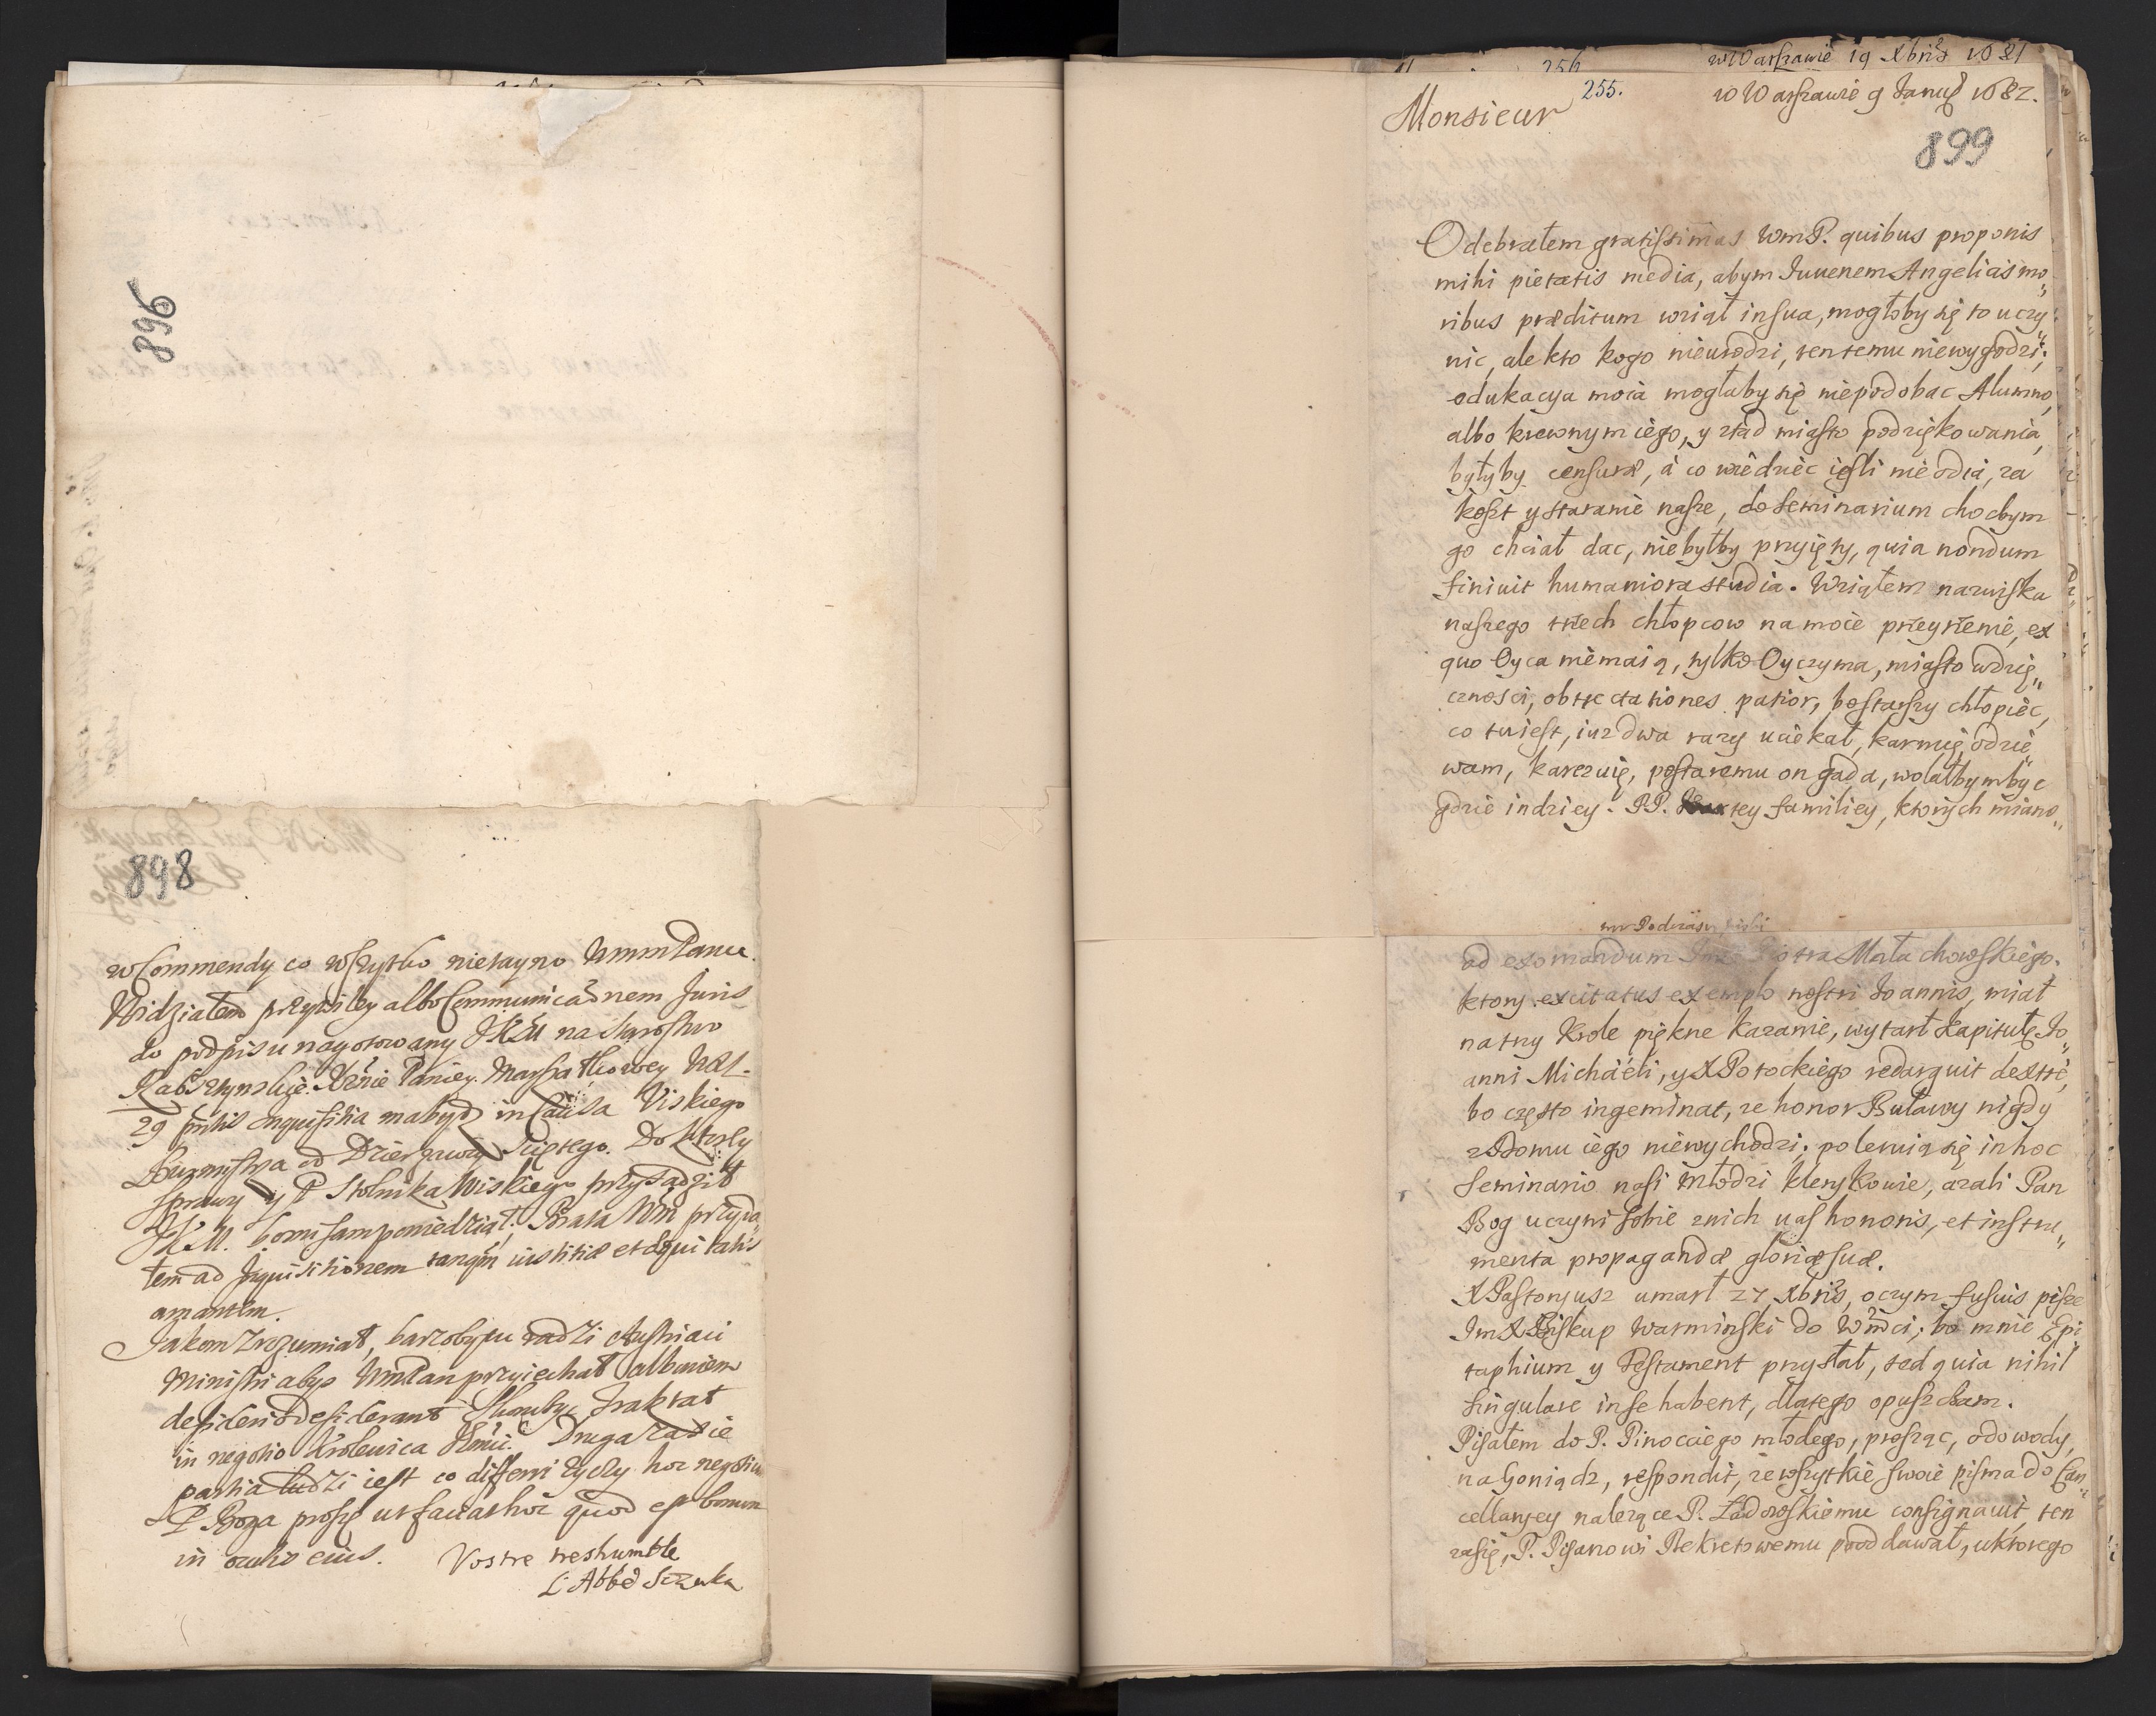 896
898
w Commendy co wszytko nietayno WmmPanu.
Widziałem przywiley albo Communicaōnem Juris
do podpisu nagotowany JKM na Starostwo
Rabsztynskie Xżnie Paniey Marszałkowey
29 inquisitia ma bydz in Causa Viskiego
od Dzierzawcy
sprawy y P Stolnika Wiskiego przysądził
JKM. bom sam powiedział, Brata Wm przyda
tem ad Inquisitionem tanqm iustitiæ et æquitatis
amantem.
Jakom zrozumiał, barzoby tu radzi Austriaci
Ministri abys WmPan przyiechał albowiem
desiderio desiderant Traktat
in negotio Krolewica JEmći. Druga zasie
partia ludzi iest co differri życzy hoc negotium
P. Boga proszę ut faciat hoc quod est bonum
in oculis eius. Vostre treshumble
L'Abbé Szczuka
256
w Warszawie 19 Xbris 1681
255.
w Warszawie 9 Januą 1682.
Monsieur
899
Odebrałem gratissimas WmP. quibus proponis
mihi pietatis media, abym Juvenem Angelicis mo„
ribus præditum wziął in sua, mogłoby się to uczy„
nic, ale kto kogo nieurodzi, ten temu niewygodzi;
edukacya moia mogłaby się niepodobac Alumno,
albo krewnym iego, y ztąd miasto podziękowania,
byłyby censuræ, à co wiedziec iesli nie odia, za
koszt y staranie nasze, do seminarium chocbym
go chciał dac, niebyłby przyięty, quia nondum
finivit humaniora studia. Wziąłem nazwiska
naszego trzech chłopcow na moie przeyrzenie, ex
quo Oyca niemaią, tylko Oyczyma, miasto wdzię„
cznosci, obtrectationes patior, bo starszy chłopiec,
co tu iest, iuz dwa razy uciekał, karmię, odzie„
wam, karczuię, postaremu on gada, wolałbym byc
gdzie indziey. PP. tey familiey, ktorych miano„
ad exornandum Piotra Małachowskiego.
ktory excitatus exemplo nostri Joannis, miał
na trzy Krole piękne kazanie, wytarł Kapitułę Jo„
anni Michaeli, y X Potockiego redarguit dextre,
bo często ingeminat, ze honor Buławy nigdy
z Domu iego niewychodzi; poleruią się in hoc
Seminario nasi młodzi klerykowie, azali Pan
Bog uczyni sobie znich uas honoris, et instru„
menta propagandæ gloriæ suæ.
X Pastoryusz umarł 27 Xbris, o czym fusius pisze
Im X Biskup Warminski do Wmći; bo mnie Epi
taphium y Testament przysłał, sed quia nihil
singulare in se habent, dlatego opuszczam.
Pisałem do P. Pinocciego młodego, prosząc, o dowody,
na Goniądz, respondit, ze wszytkie swoie pisma do Can„
cellaryey nalezące P. Ładowskiemu consignavit, ten
zasię, P. Pisarzowi Dekretowemu pooddawał, u ktorego